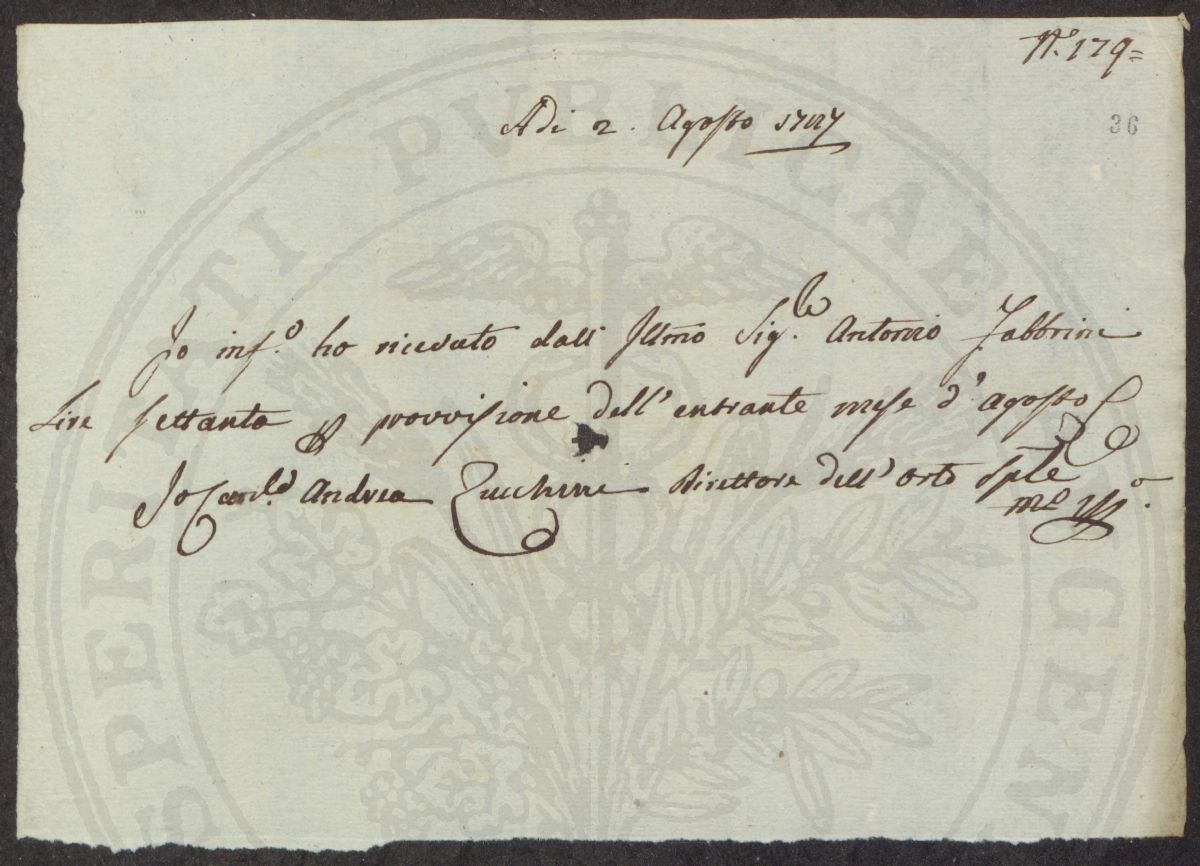 N.° 179=
36
Adi 2. Agosto 1787
Io inf.° ho ricevuto dall' Illmo Sig.re Antonio Fabbrini
Lire settanta provvisione dell'entrante mese d'agosto
Io Andrea Zucchini Direttore dell'orto Sple
PERITATI PUBLICAE